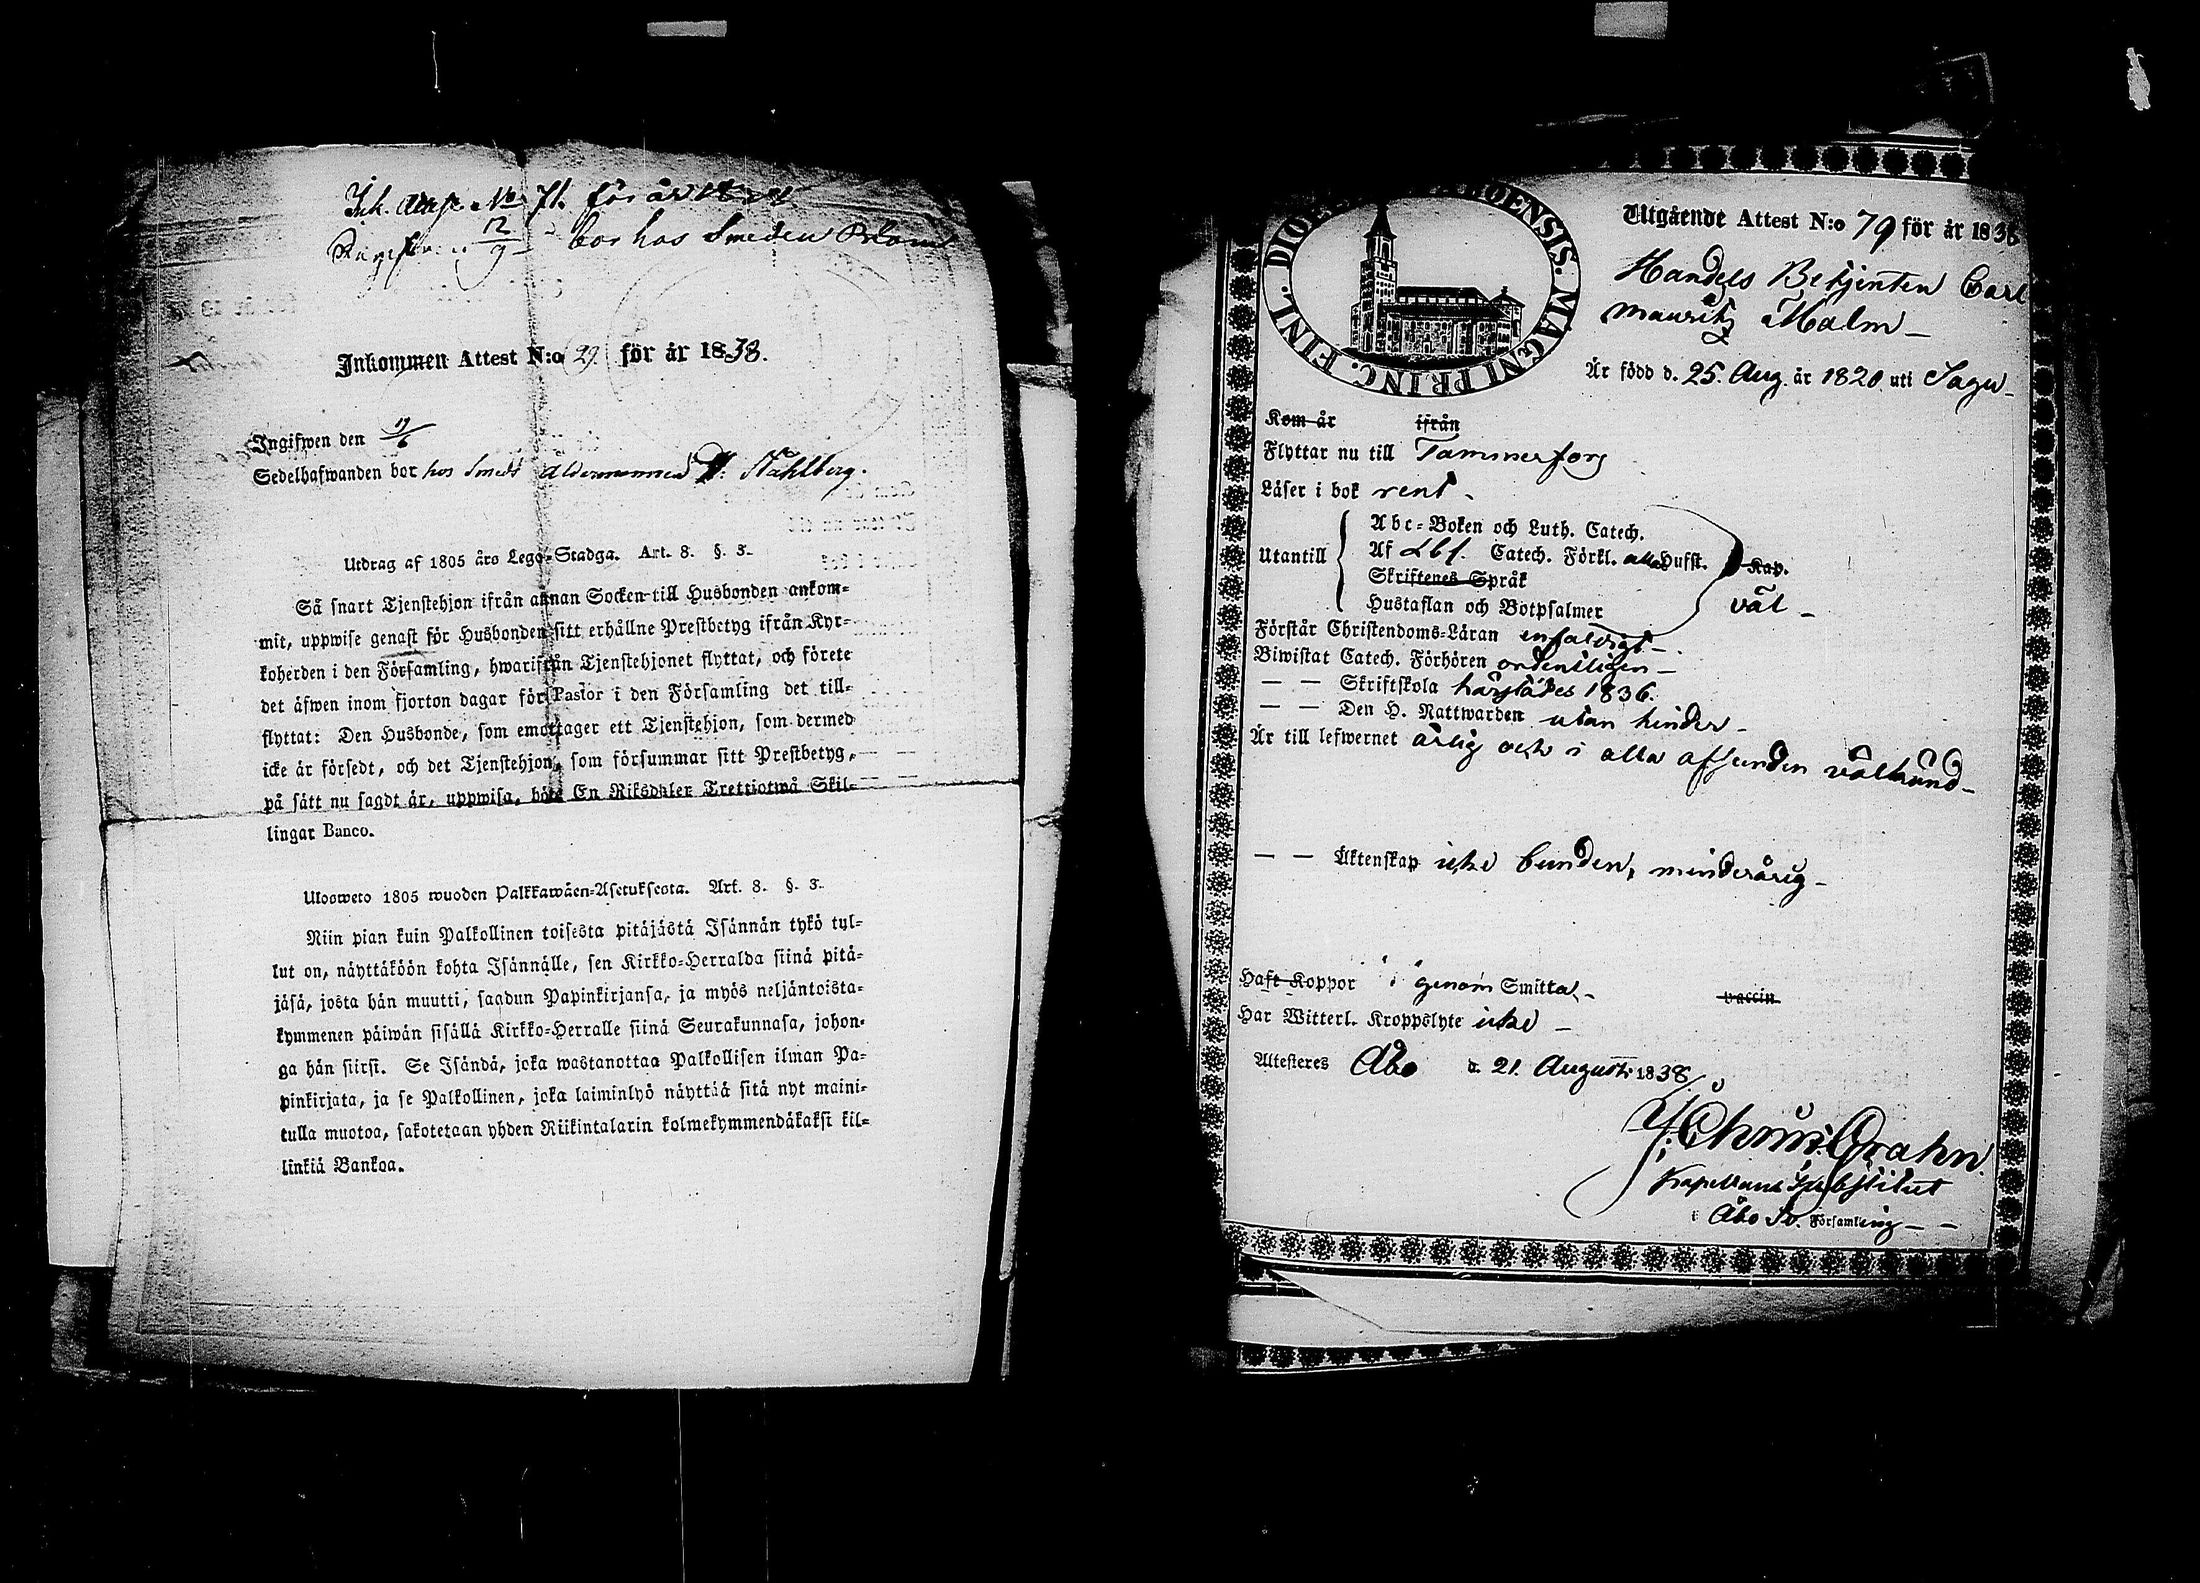 Ink. Att. No 71. för år
12/9 bor hos Smeden Blom
Inkommen Attest N:o 29. för år 1838.
Ingifwen den 17/6
Sedelhafwanden bor hos Smeds Åldermannen Ståhlberg.
Utdrag af 1805 års Lego-Stadga. Art. 8. §. 3.
Så snart Tjenstehjon ifrån annan Socken till Husbonden ankom-
mit, uppwise genast för Husbonden sitt erhållne Prestbetyg ifrån Kyr-
koherden i den Församling, hwarifrån Tjenstehjonet flyttat, och förete
det äfwen inom fjorton dagar för Pastor i den Församling det till-
flyttat: Den Husbonde, som emottager ett Tjenstehjon, som dermed
icke är försedt, och det Tjenstehjon, som försummar sitt Prestbetyg,
på sätt nu sagdt är, uppwisa, böte En Riksdaler Trettiotwå Skil-
lingar Banco.
Ulosweto 1805 wuoden Palkkawäen-Asetuksesta. Art. 8. §. 3.
Niin pian kuin Palkollinen toisesta pitäjästä Isännän tykö tul-
lut on, näyttäköön kohta Isännälle, sen Kirkko-Herralda siinä pitä-
jäsä, josta hän muutti, saadun Papinkirjansa, ja myös neljäntoista-
kymmenen päiwän sisällä Kirkko-Herralle siinä Seurakunnasa, johon-
ga hän siirsi. Se Isändä, joka wastanottaa Palkollisen ilman Pa-
pinkirjata, ja se Palkollinen, joka laiminlyö näyttää sitä nyt maini-
tulla muotoa, sakotetaan yhden Riikintalarin kolmekymmendäkaksi kil-
linkiä Bankoa.
DIOE ABOENSIS. MAGNI PRINC. FINL.
Utgående Attest N:o 79 för år 1838
Handels Betjenten Carl
Mauritz Malm
Är född d. 25. Aug. år 1820 uti Sagu
Kom år ifrån
Flyttar nu till Tammerfors
Läser i bok rent
Abc-Boken och Luth. Catech.
Utantill Af Lbf. Catech. Förkl. alla Hufst. Kap.
Skriftenes Språk
Hustaflan och Botpsalmer väl
Förstår Christendoms-Läran enfaldigt
Biwistat Catech. Förhören ordentligen
— — Skriftskola härstädes 1836.
— — Den H. Nattwarden utan hinder
Är till lefwernet ärlig och i alla afseenden välkänd
— — Äktenskap icke bunden, minderårig
Haft Koppor genom Smitta vaccin
Har Witterl. Kroppslyte icke
Attesteres Åbo d. 21. Augusti 1838
Grahn
Kapellans Substitut
i Åbo Sv. Församling